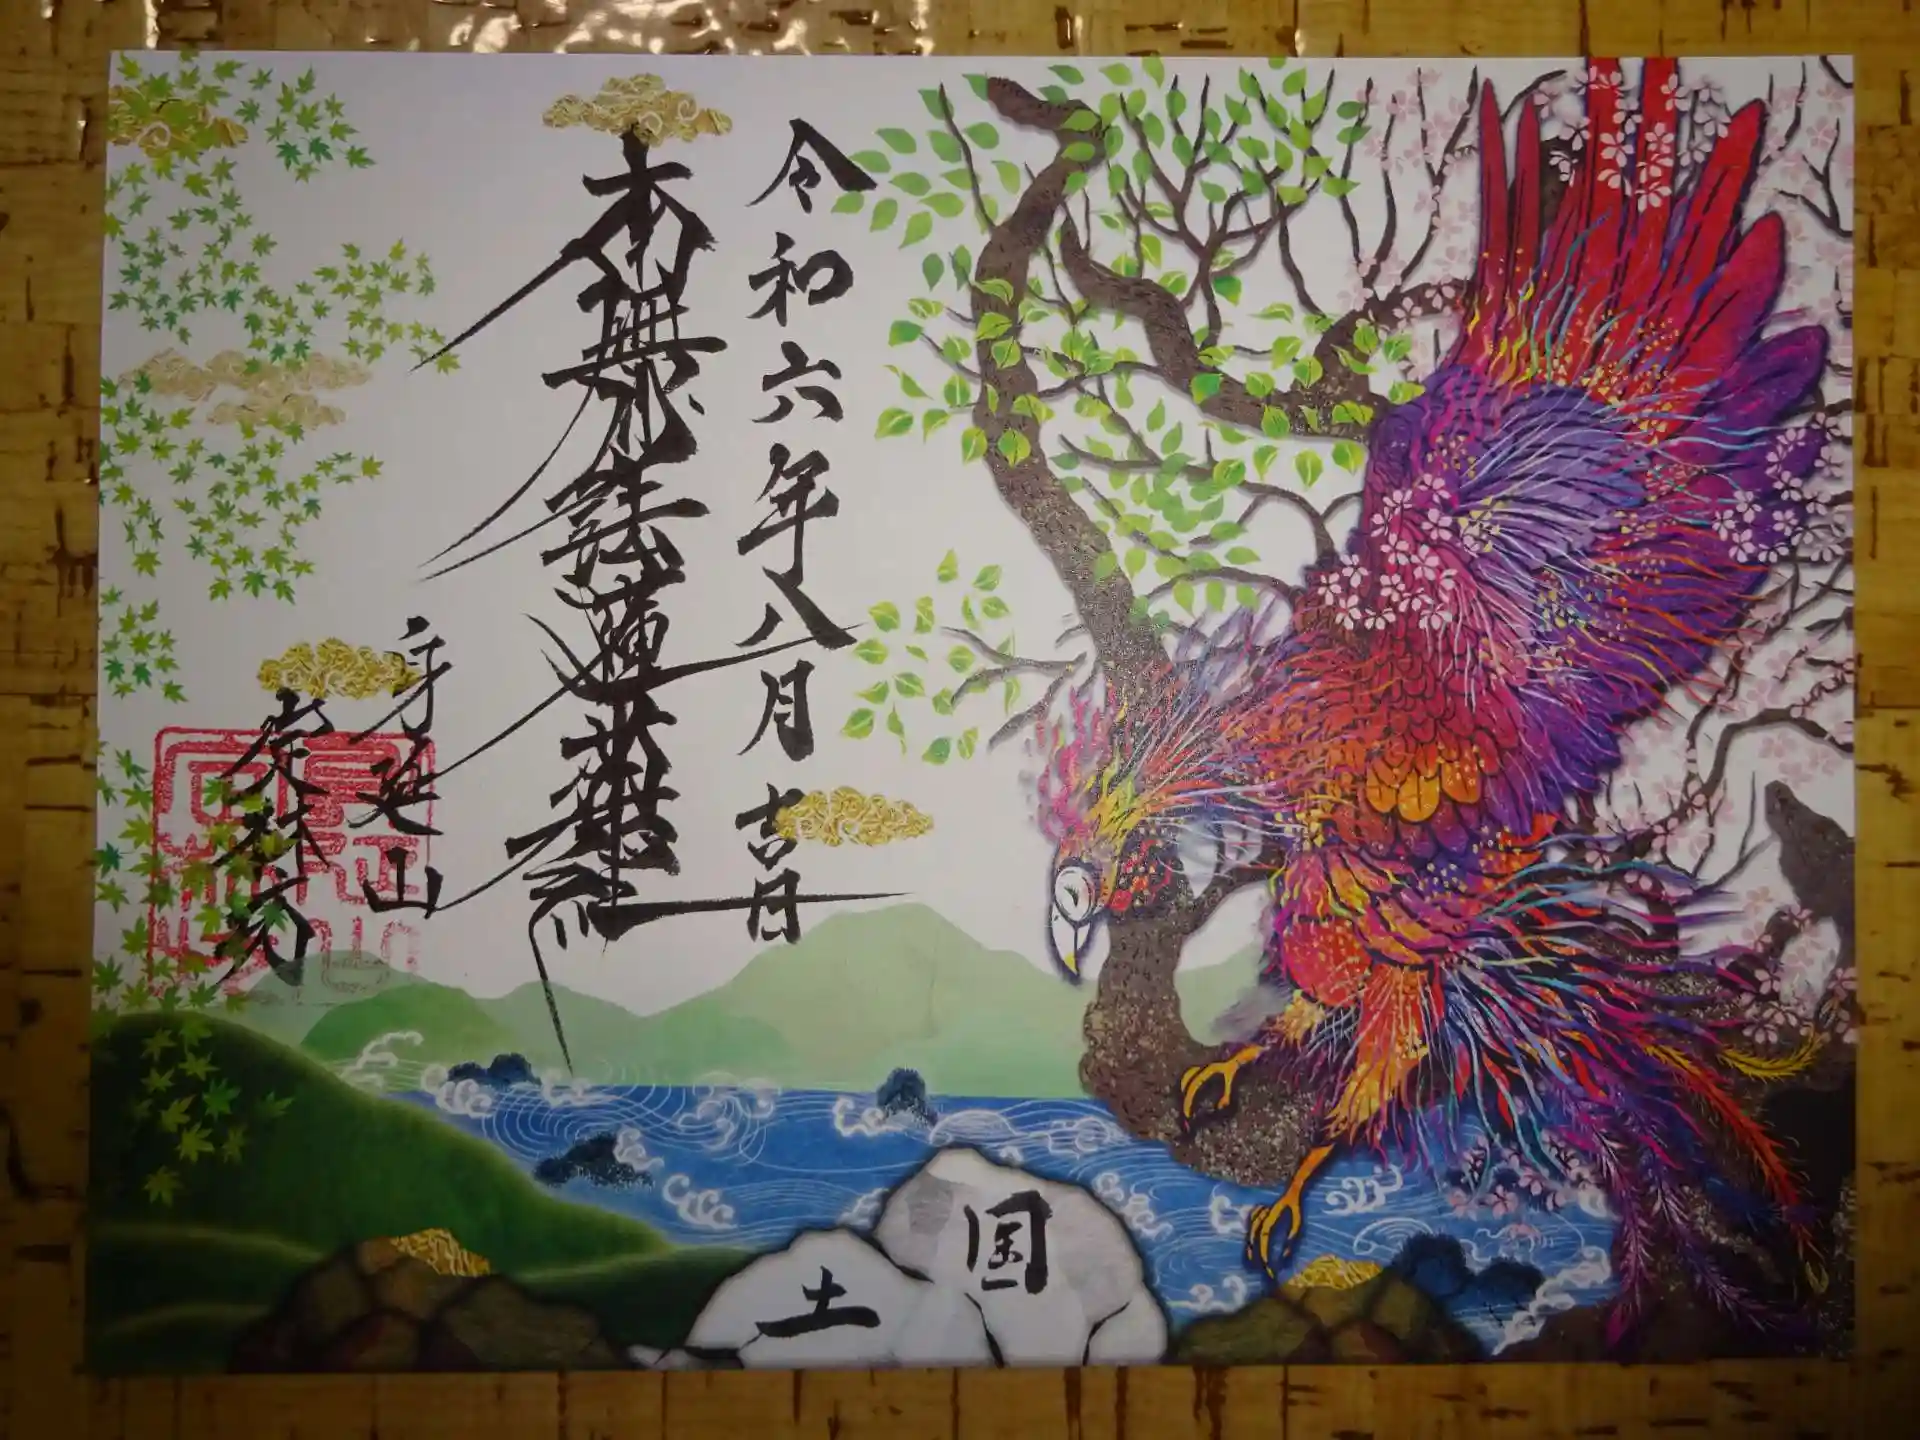 令和六年八月吉日
南無妙法蓮華経
身延山
定林坊
国
土